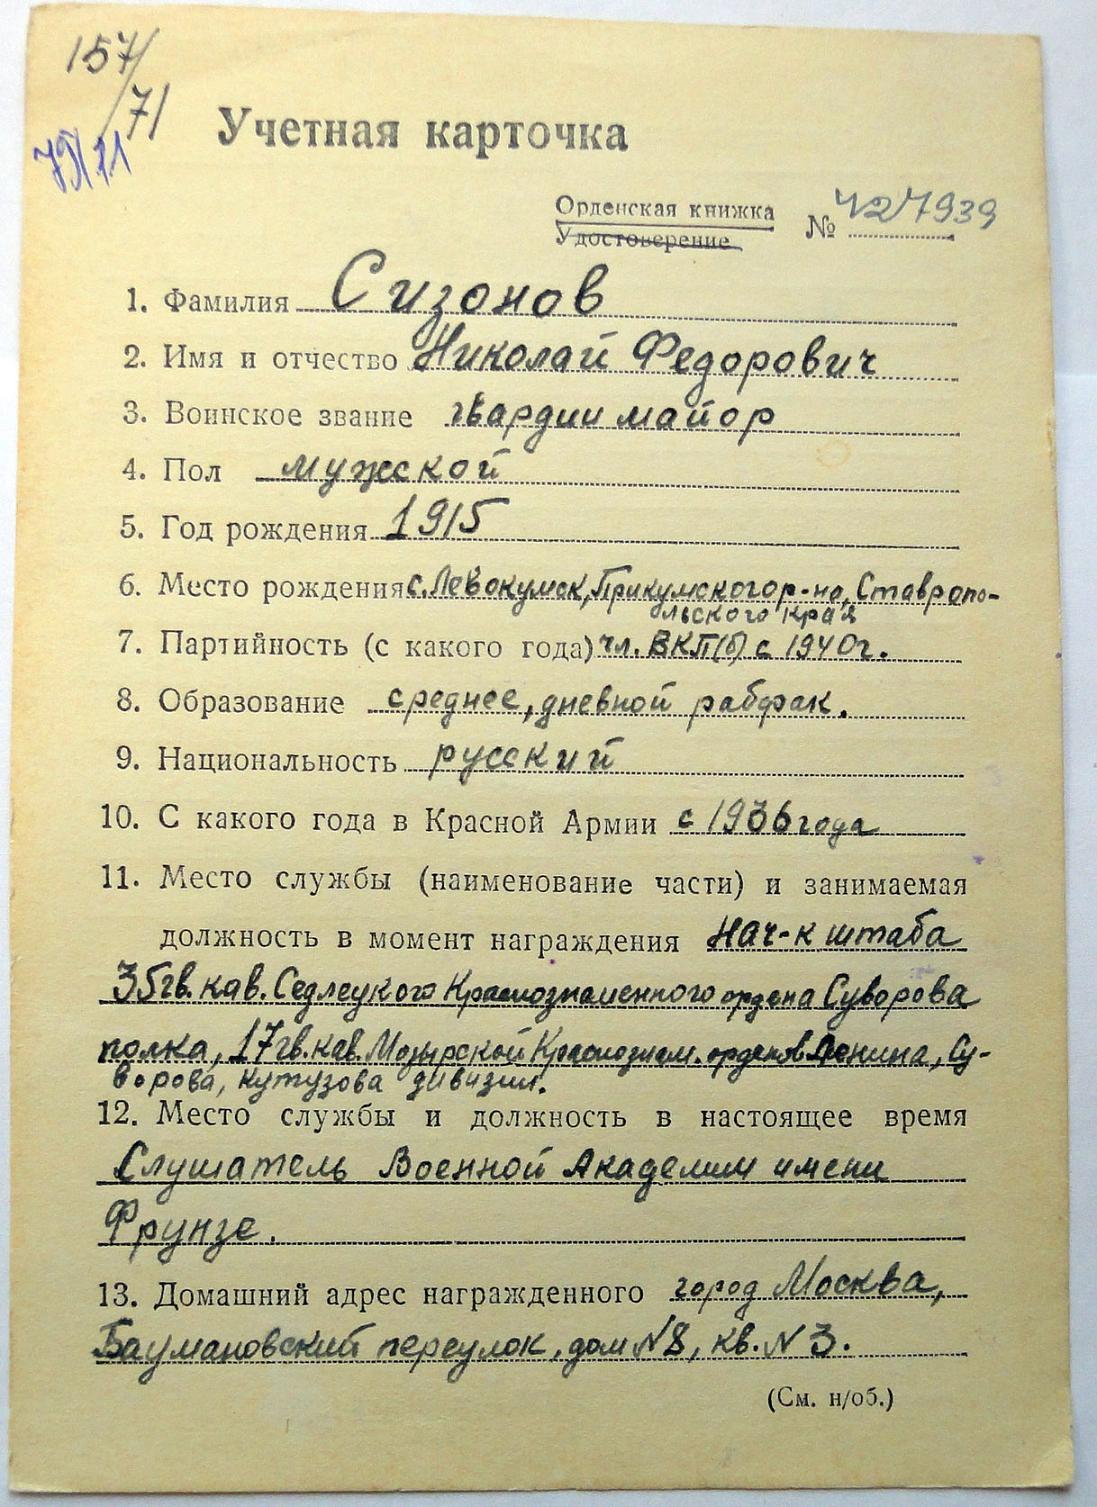 157/
/71
79/11
Учетная карточка
Орденская книжка
Удостоверение
№ 427939
1. Фамилия Сизонов
2. Имя и отчество Николай Федорович
3. Воинское звание гвардии майор
4. Пол мужской
5. Год рождения 1915
6. Место рождения с. Левокумск, Прикумского р-на, Ставропо-
льского края
7. Партийность (с какого года) чл. ВКП(б) с 1940г.
8. Образование среднее, дневной рабфак.
9. Национальность русский
10. С какого года в Красной Армии с 1936 года
11. Место службы (наименование части) и занимаемая
должность в момент награждения Нач-к штаба
35 гв. кав. Седлецкого Краснознаменного ордена Суворова
полка, 17 гв. кав. Мозырской Краснознам. орденов Ленина, Су-
ворова, Кутузова дивизии.
12. Место службы и должность в настоящее время
Слушатель Военной Академии имени
Фрунзе.
13. Домашний адрес награжденного город Москва,
Баумановский переулок, дом N 8, кв. N 3.
(См. н/об.)